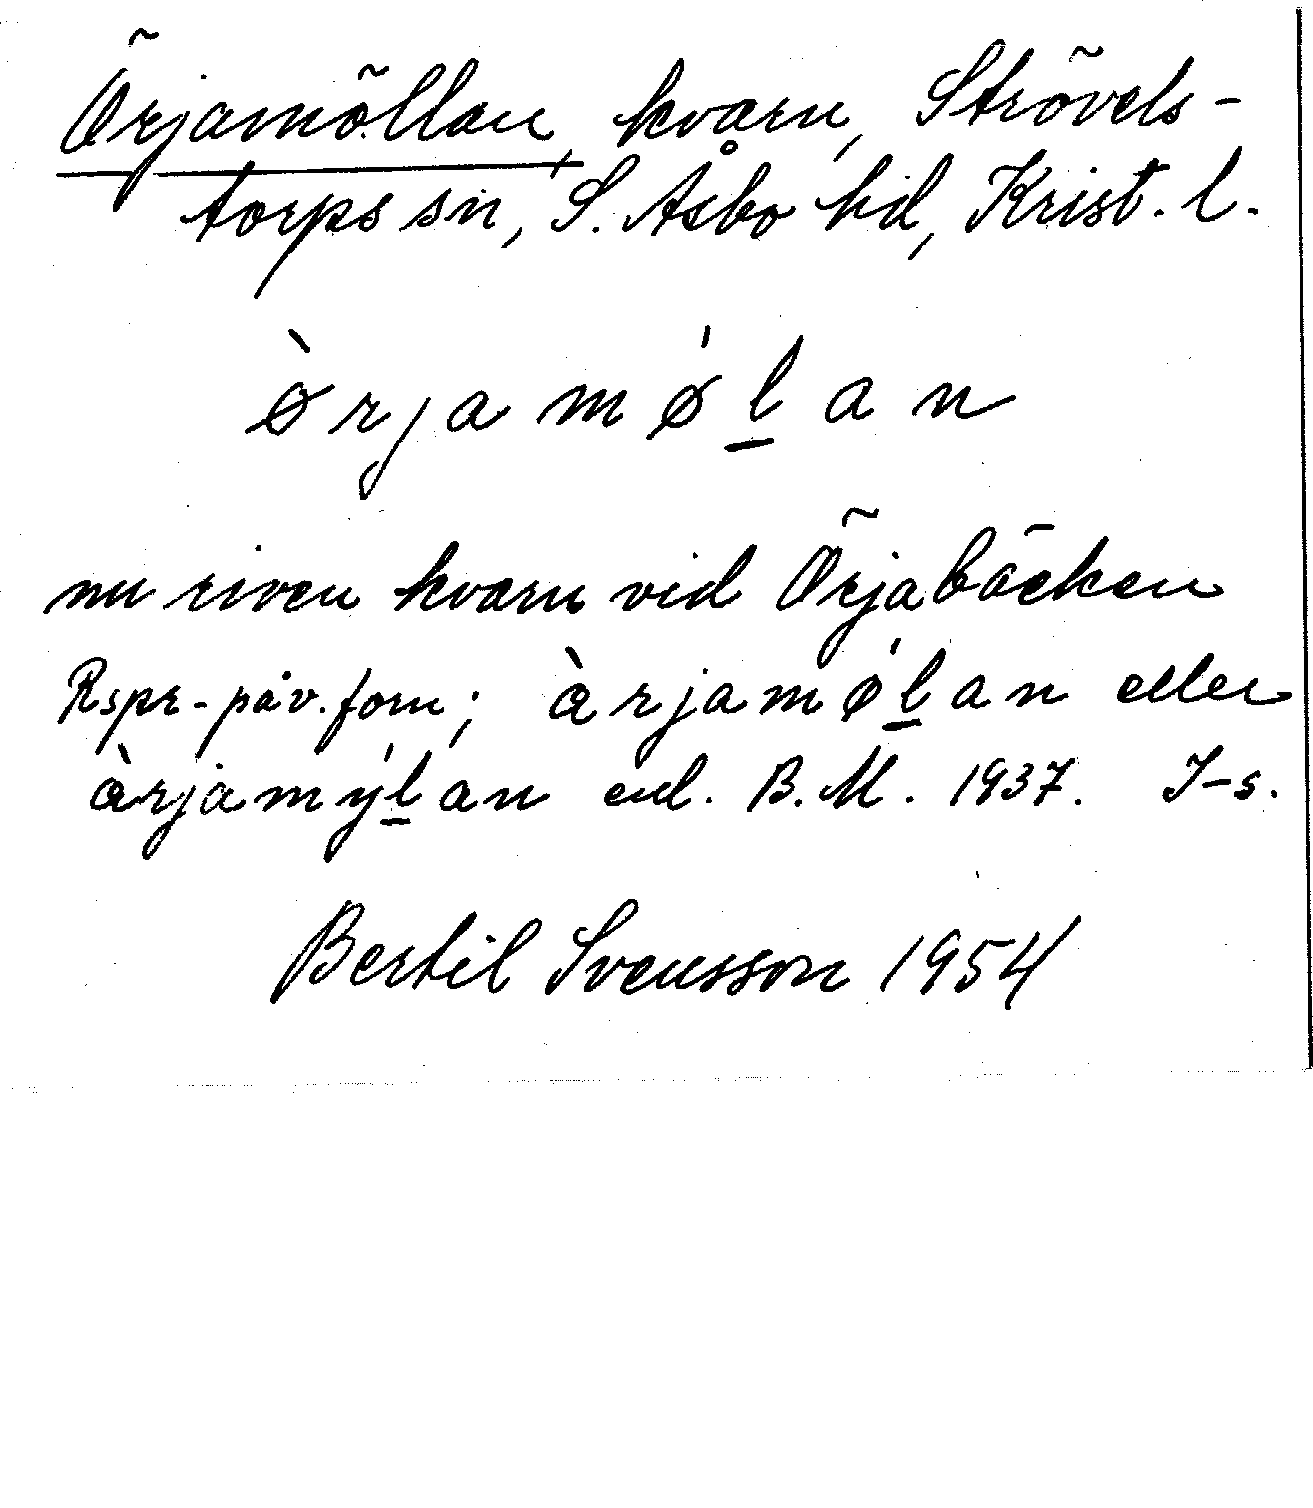 Örjamöllan, kvarn, Strövels-
torps sn, S. Åsbo hd, Krist. l.
ø̀rjamǿḻan
nu riven kvarn vid Örjabäcken
Rspr-påv. form; àrjamǿḻan eller
àrjamýḻan enl. B.M. 1937. I-s.
Bertil Svensson 1954